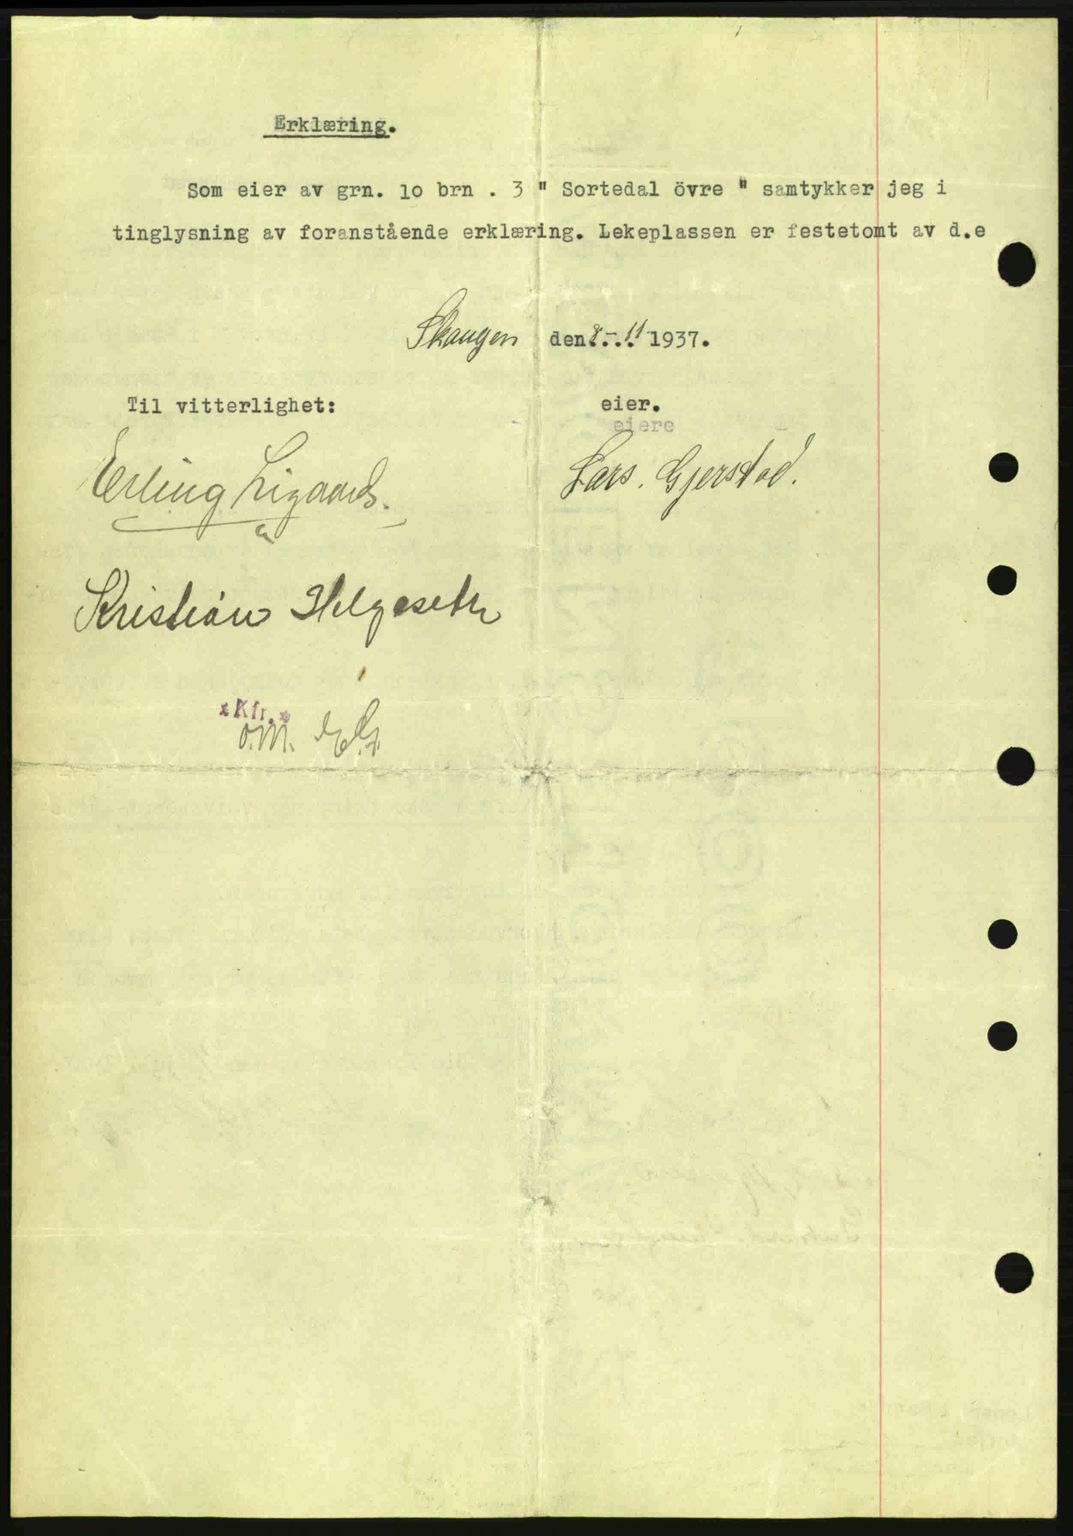 Erklæring.
Som eier av grn. 10 brn . 3 " Sortedal övre " samtykker jeg i
tinglysning av foranstående erklæring. Lekeplassen er festetomt av d.e
Skaugen den 8.-.11 1937.
Til vitterlighet: eier.
eiere
Erling Ligaard. Lars. Gjerstad.
Kristian Helgeseth
*Kfr.*
O.M.